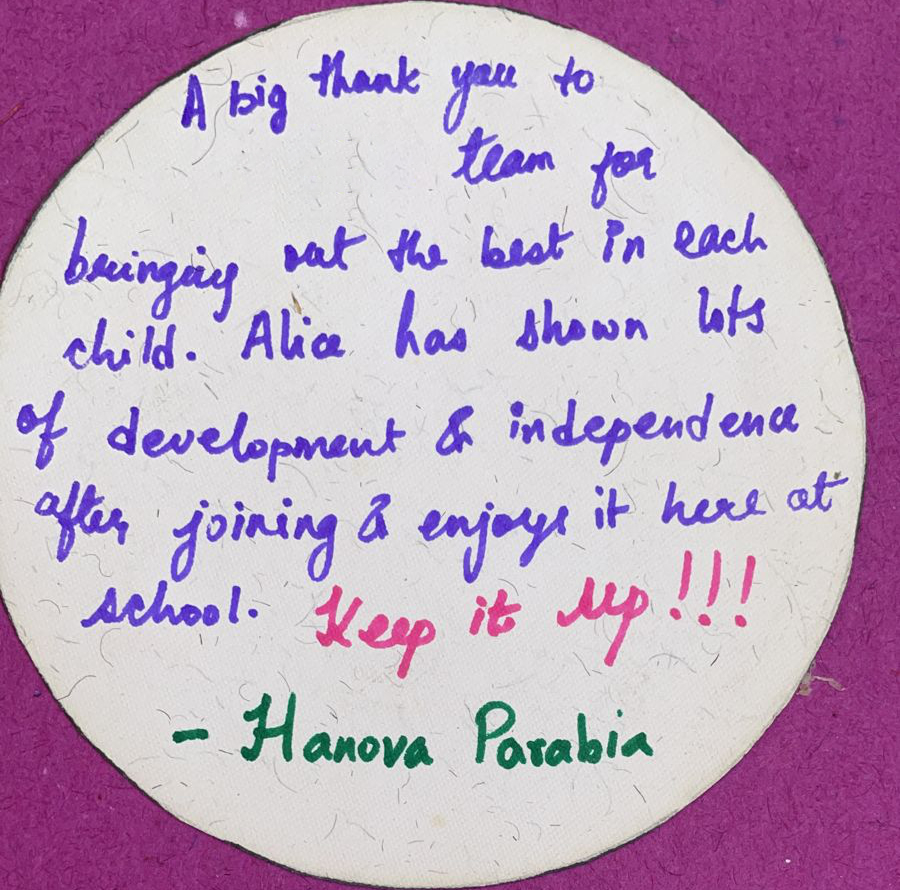 A big thank you to
team for
bringing out the best in each
child. Alice has shown lots
of development & independence
after joining & enjoys it here at
school. Keep it up!!!
- Hanova Parabia